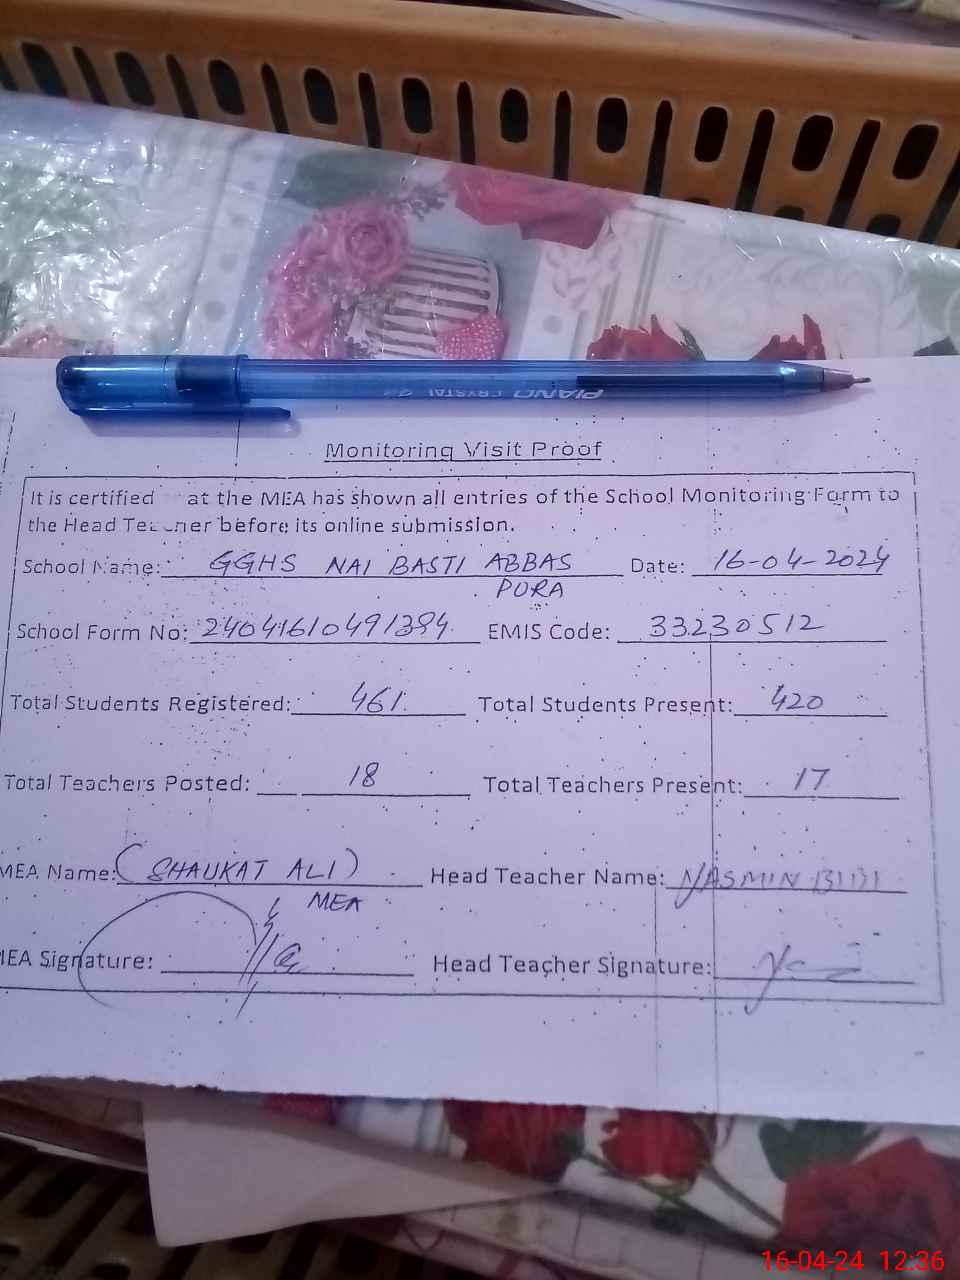 PIANO CRYSTAL
Monitoring Visit Proof
It is certified at the MEA has shown all entries of the School Monitoring Form to
the Head Teacher before its online submission.
School Name: GGHS NAI BASTI ABBAS Date: 16-04-2024
PURA
School Form No: 24041610491384 EMIS Code: 33230512
Total Students Registered: 461 Total Students Present: 420
Total Teachers Posted: 18 Total Teachers Present: 17
MEA Name: (SHAUKAT ALI) Head Teacher Name: YASMIN BIBI
MEA
MEA Signature: Head Teacher Signature:
16-04-24 12:36